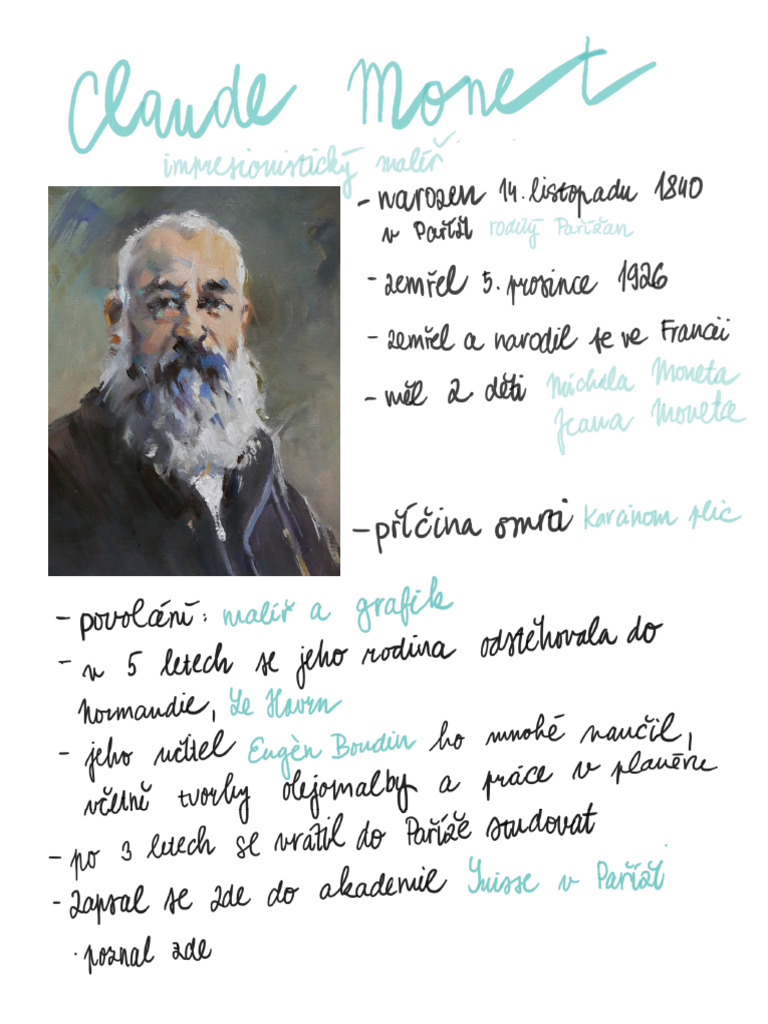 Claude Monet
impresionistický malíř
- narozen 14. listopadu 1840
v Paříži rodilý Pařížan
- zemřel 5. prosince 1926
- zemřel a narodil se ve Francii
- měl 2 děti Michela Moneta
Jeana Moneta
- příčina smrti Karcinom plic
- povolání: malíř a grafik
- v 5 letech se jeho rodina odstěhovala do
Normandie, Le Havru
- jeho učitel Eugèn Boudin ho mnohé naučil,
včetně tvorby olejomalby a práce v plenéru
- po 3 letech se vrátil do Paříže studovat
- Zapsal se zde do akademie Suisse v Paříži
· poznal zde